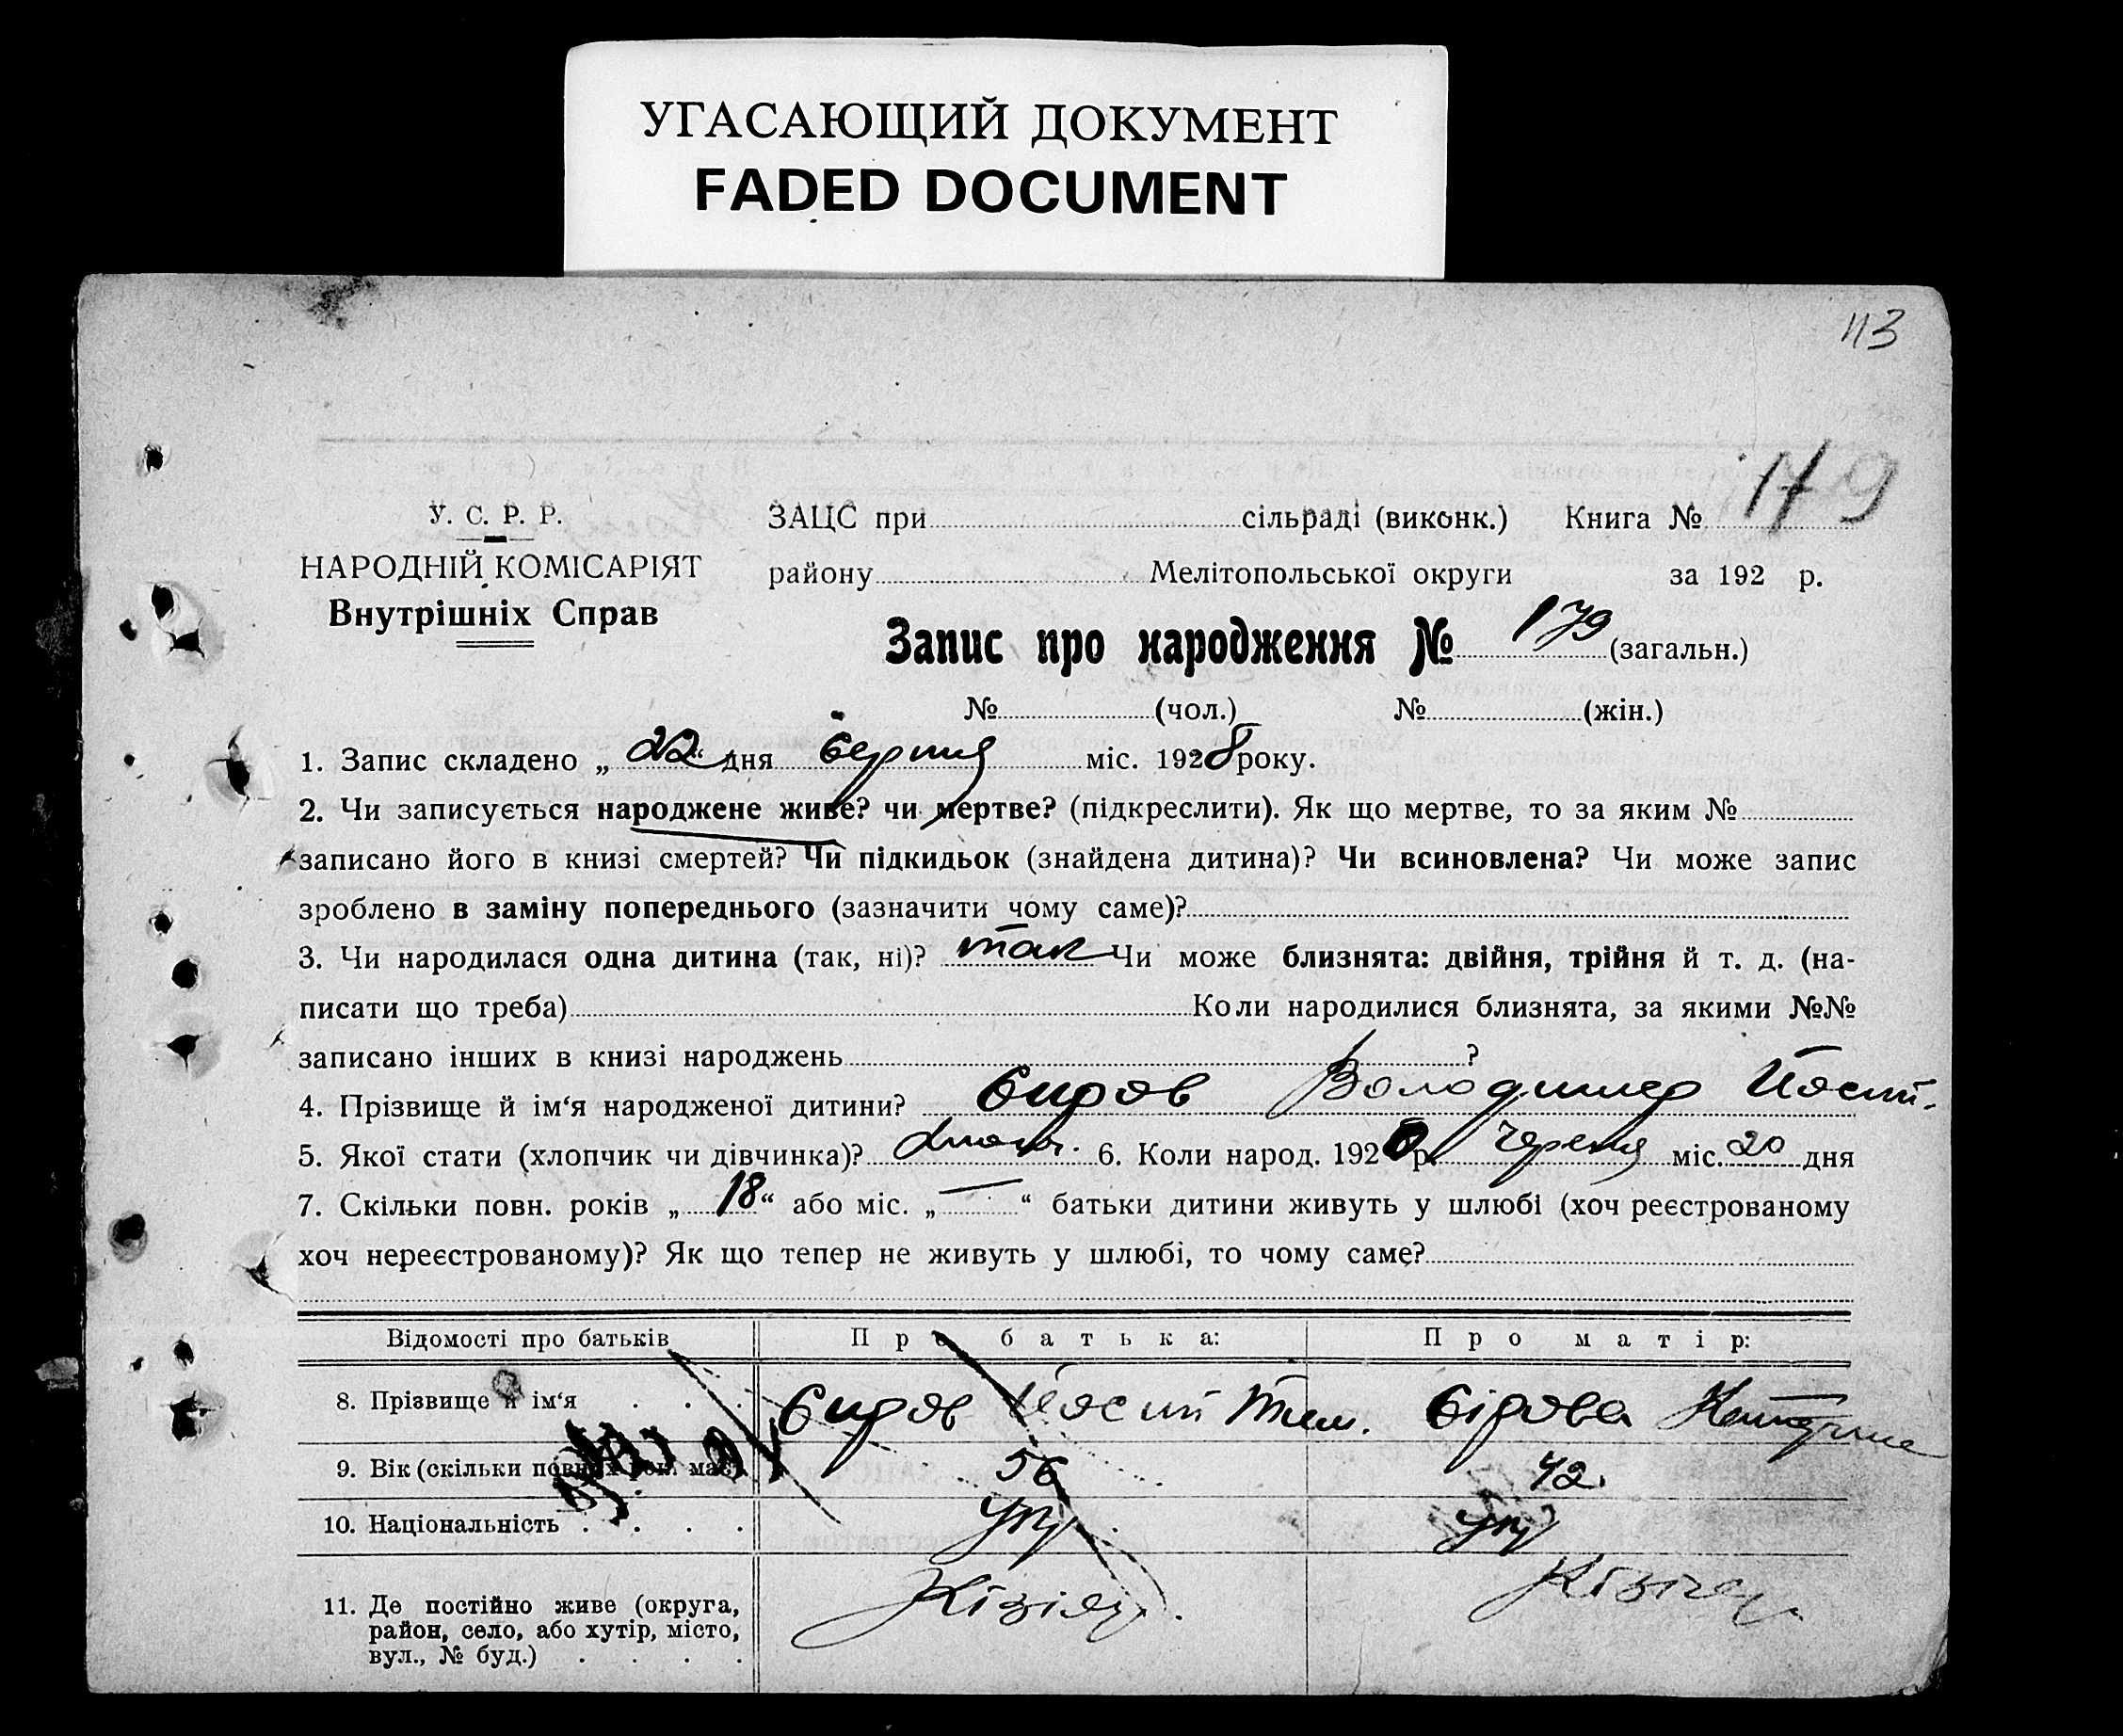 УГАСАЮЩИЙ ДОКУМЕНТ
FADED DOCUMENT
113
У. С. Р. Р.
НАРОДНІЙ КОМІСАРІЯТ
Внутрішніх Справ
ЗАЦС при сільраді (виконк.) Книга № 179
району Мелітопольської округи за 192 р.
Запис про народження № 179 (загальн.)
№ (чол.) № (жін.)
1. Запис складено „ 22 “ дня Серпня міс. 1928 року.
2. Чи записується народжене живе? чи мертве? (підкреслити). Як що мертве, то за яким №
записано його в книзі смертей? Чи підкидьок (знайдена дитина)? Чи всиновлена? Чи може запис
зроблено в заміну попереднього (зазначити чому саме)?
3. Чи народилася одна дитина (так, ні)? так Чи може близнята: двійня, трійня й т. д. (на-
писати що треба) Коли народилися близнята, за якими №№
записано інших в книзі народжень ?
4. Прізвище й ім‘я народженої дитини? Сиров Володимер Йосип.
5. Якої стати (хлопчик чи дівчинка)? 6. Коли народ. 192 р. Черепня міс. 20 дня
7. Скільки повн. років „ 18 “ або міс. „ — “ батьки дитини живуть у шлюбі (хоч реєстрованому
хоч нереєстрованому)? Як що тепер не живуть у шлюбі, то чому саме?
Відомості про батьків Про батька: Про матір:
8. Прізвище й ім‘я . . . Сиров Йосип Тим. Сірова Катерина
9. Вік (скільки повних рок. має) 56 42.
10. Національність . . . . Укр Укр
11. Де постійно живе (округа,
район, село, або хутір, місто,
вул., № буд.) . . . .
Кізіяр. Кізіяр.